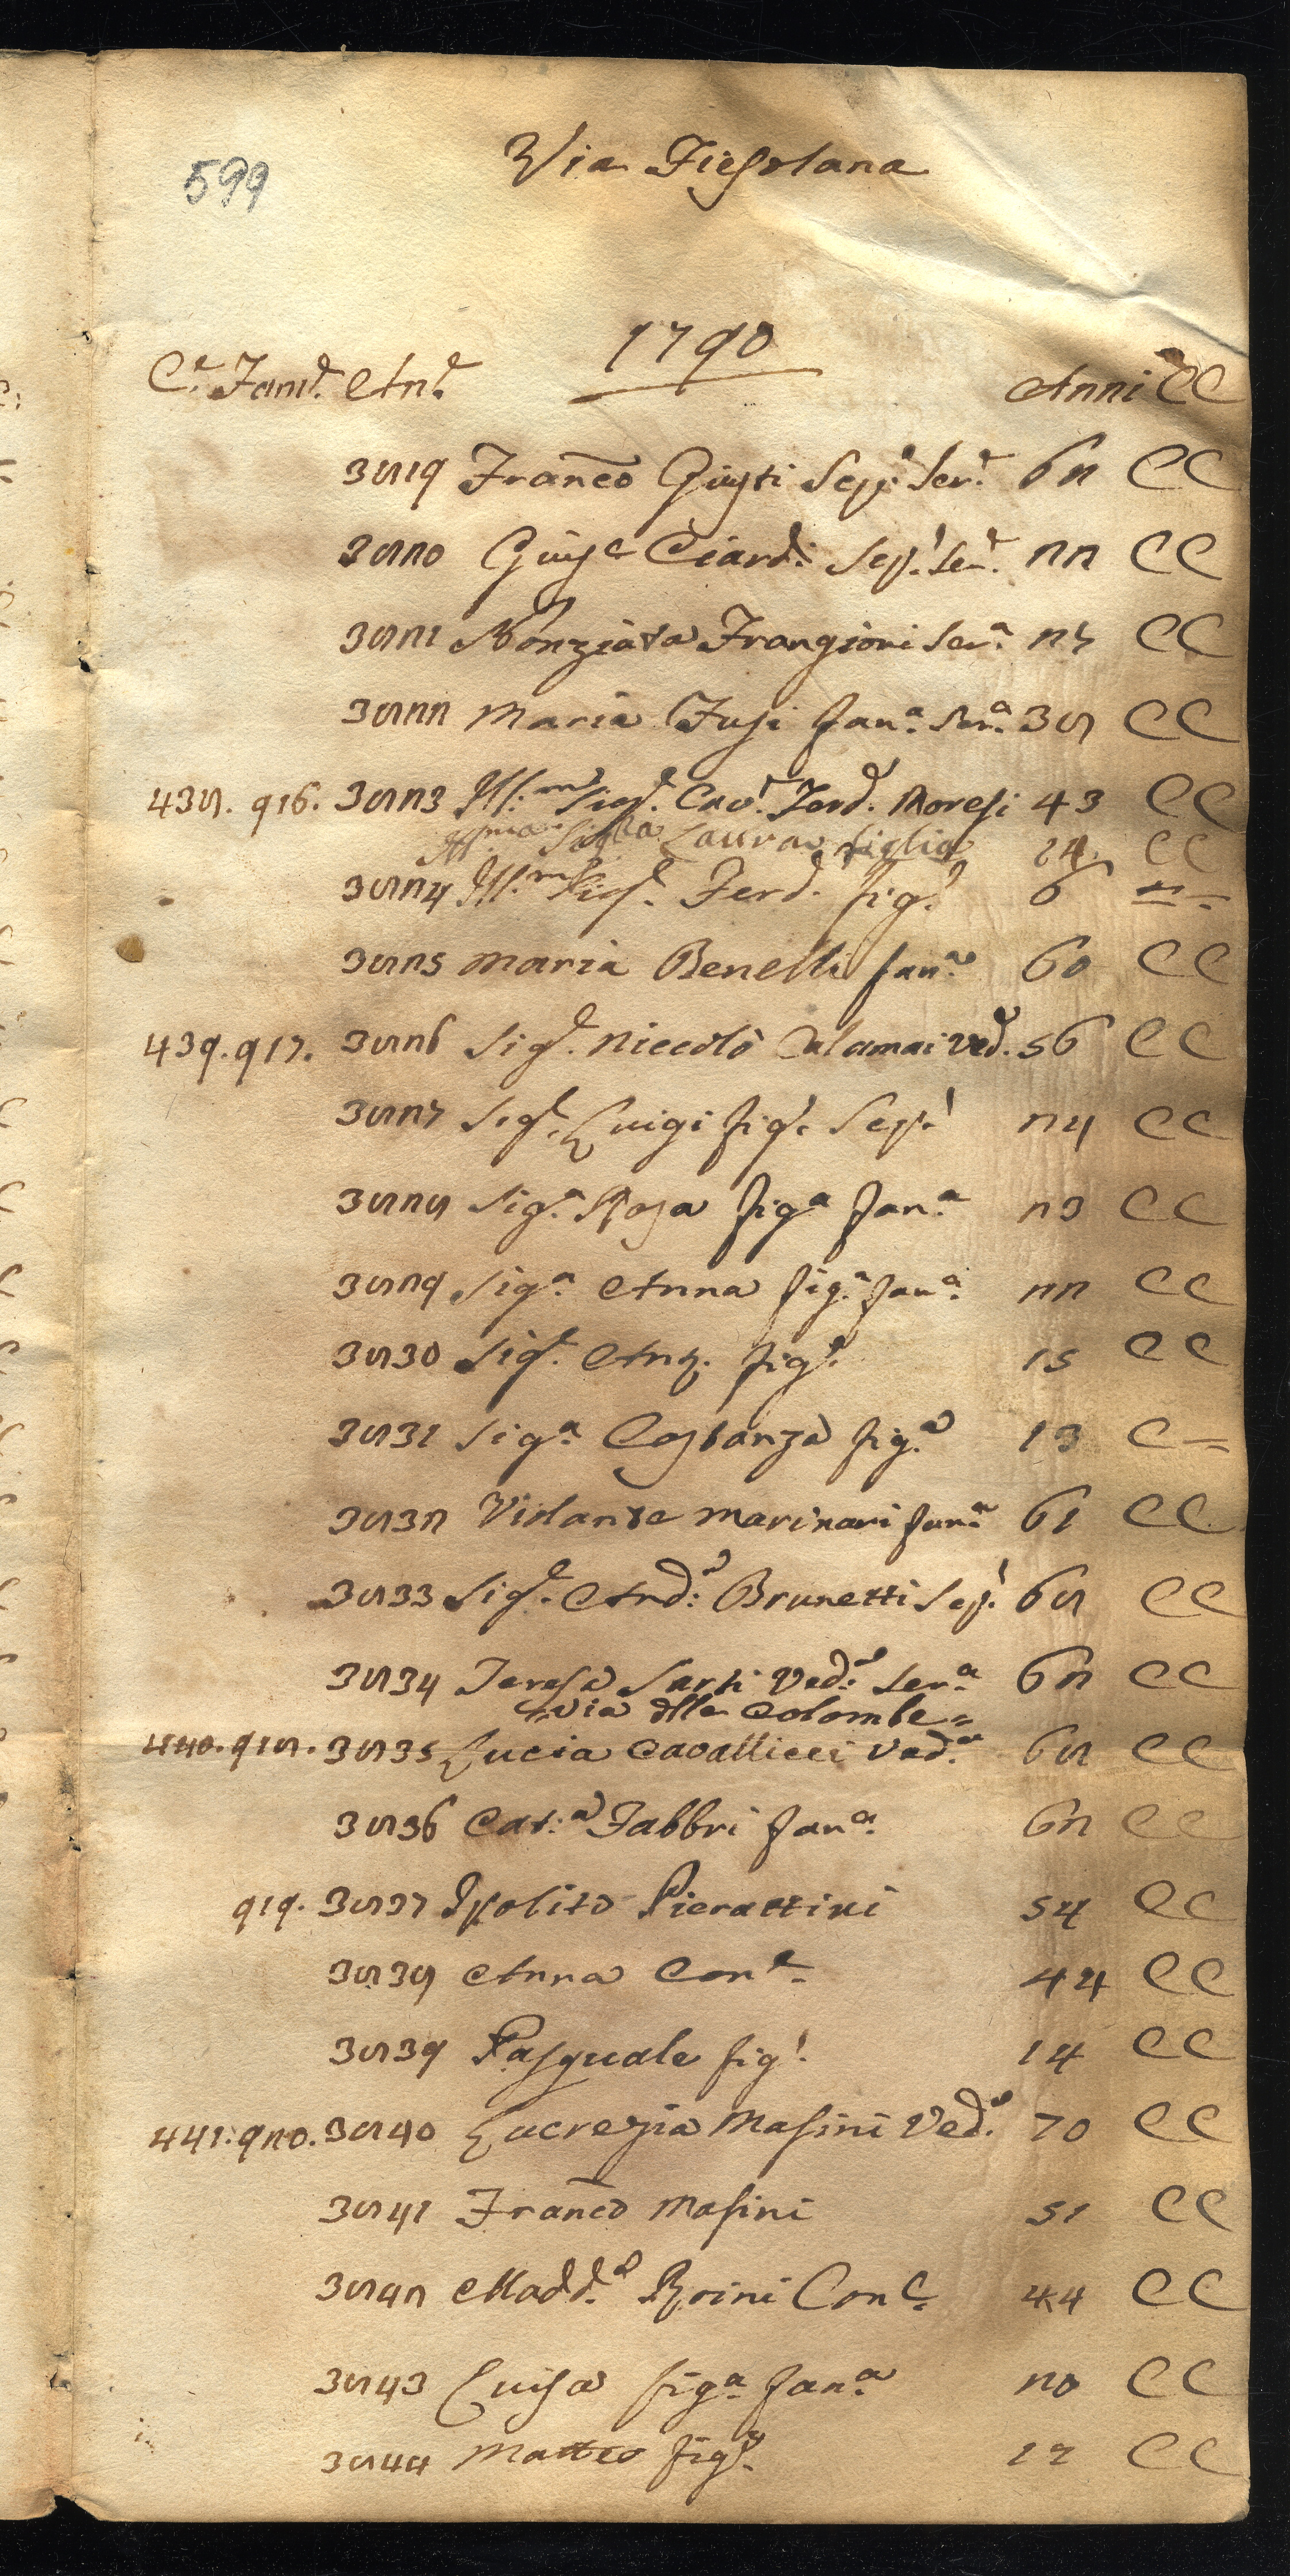 599
Via Fiesolana
1790
C.e Fami.e An.e Anni CC
3819 Fran.co Giusti Scp.o Ser.e 62 CC
3820 Gius.e Ciardi Scp.o Ser.e 22 CC
3821 Nonziata Frangioni Ser.a 27 CC
3822 Maria Fusi fan.a Ser.a 38 CC
438. 916. 3823 Ill.mo Sig.e Cav.e Ferd.o Moresi 43 CC
Ill.ma Sig.ra Laura figlia 14 CC
3824 Ill.mo Sig.e Ferd.o fig.o 6 = -
3825 Maria Benelli fan.a 60 CC
439. 917. 3826 Sig.e Niccolò Calamai Ved.o 56 CC
3827 Sig.e Luigi fig.o Scp.o 24 CC
3828 Sig.a Rosa fig.a fan.a 23 CC
3829 Sig.a Anna fig.a fan.a 22 CC
3830 Sig.e Ant. fig.o 15 CC
3831 Sig.a Costanza fig.a 13 C =
3832 Violante Marinari fan.a 61 CC
3833 Sig.e And.a Brunetti Scp.o 68 CC
3834 Teresa Sarti Ved.a Ser.a 62 CC
= via dlle Colombe =
440. 918. 3835 Lucia Cavallicci Ved.a 68 CC
3836 Cat.a Fabbri fan.a 62 CC
919. 3837 Ipolito Pierattini 54 CC
3838 Anna Con.e 44 CC
3839 Pasquale fig.o 14 CC
441. 920. 3840 Lucrezia Masini Ved.a 70 CC
3841 Fran.co Masini 51 CC
3842 Madd.a Con.e 44 CC
3843 Luisa fig.a fan.a 20 CC
3844 Matteo fig.o 12 CC